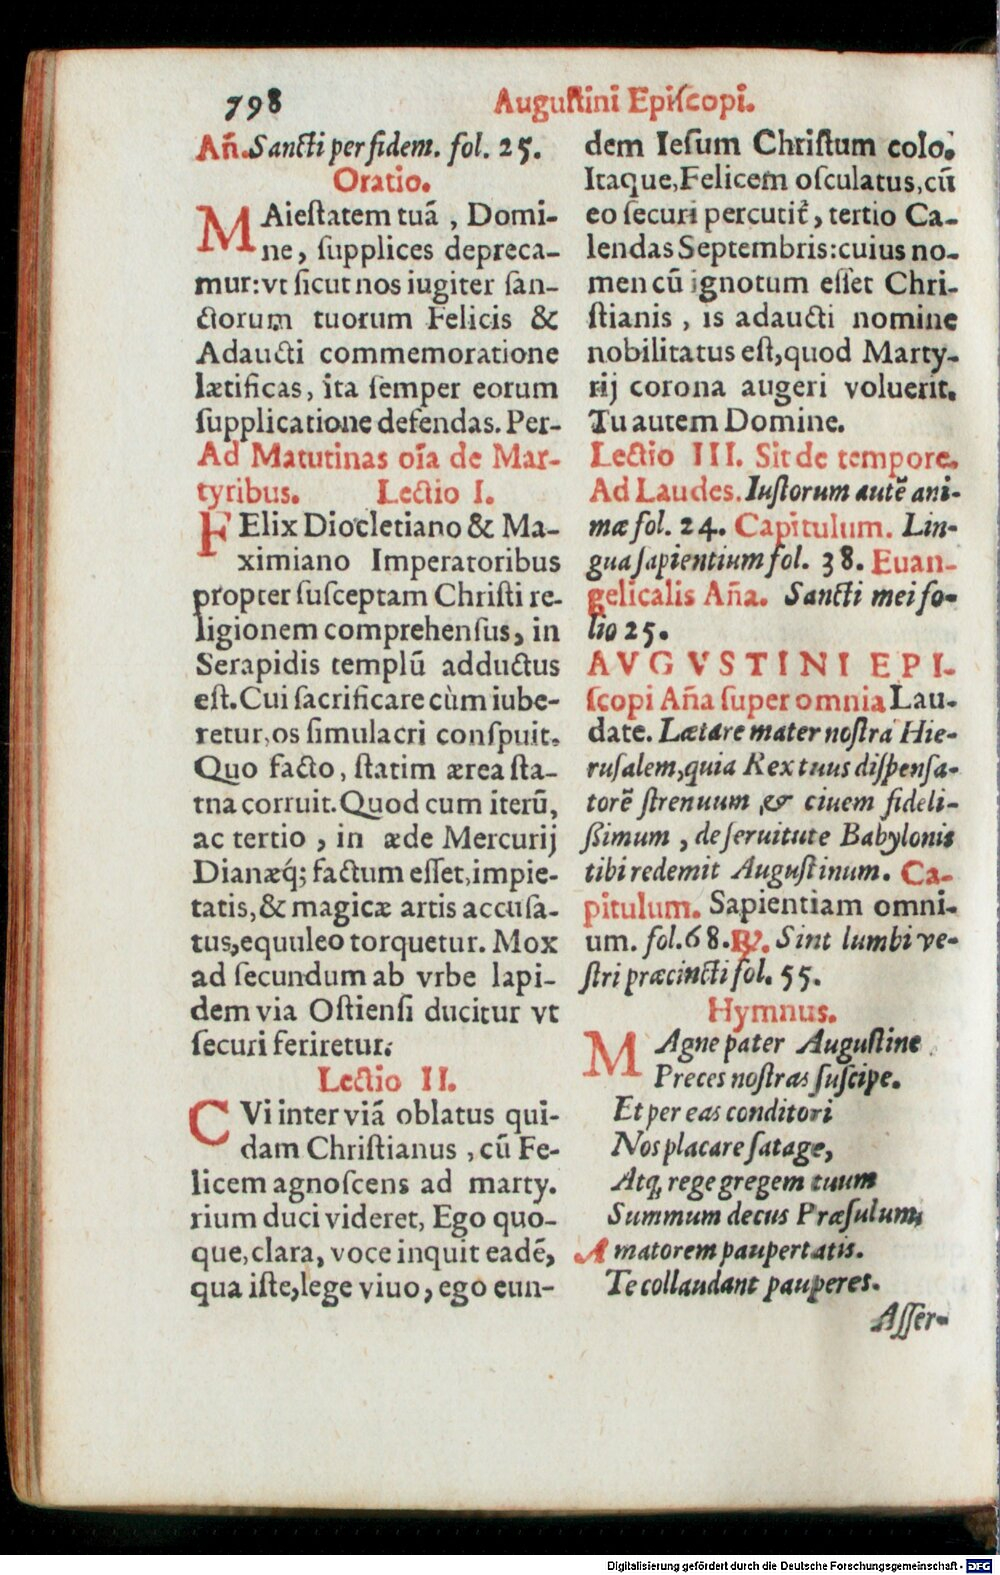 798
Auguſtini Epiſcopi.
Añ. Sancti per fidem. fol. 25.
Oratio.
MAieſtatem tuā, Domi-
ne, ſupplices depreca-
mur: vt ſicut nos iugiter ſan-
ctorum tuorum Felicis &
Adaucti commemoratione
lætificas, ita ſemper eorum
ſupplicatione defendas. Per-
Ad Matutinas oīa de Mar-
tyribus. Lectio I.
FElix Diocletiano & Ma-
ximiano Imperatoribus
propter ſuſceptam Chriſti re-
ligionem comprehenſus, in
Serapidis templū adductus
eſt. Cui ſacrificare cùm iube-
retur, os ſimulacri conſpuit.
Quo facto, ſtatim ærea ſta-
tua corruit. Quod cum iterū,
ac tertio, in æde Mercurij
Dianæq́; factum eſſet, impie-
tatis, & magicæ artis accuſa-
tus, equuleo torquetur. Mox
ad ſecundum ab vrbe lapi-
dem via Oſtienſi ducitur vt
ſecuri feriretur.
Lectio II.
CVi inter viā oblatus qui-
dam Chriſtianus, cū Fe-
licem agnoſcens ad marty.
rium duci videret, Ego quo-
que, clara, voce inquit eadē,
qua iſte, lege viuo, ego eun-
dem Ieſum Chriſtum colo.
Itaque, Felicem oſculatus, cū
eo ſecuri percutit̃, tertio Ca-
lendas Septembris: cuius no-
men cū ignotum eſſet Chri-
ſtianis, is adaucti nomine
nobilitatus eſt, quod Marty-
rij corona augeri voluerit.
Tu autem Domine.
Lectio III. Sit de tempore.
Ad Laudes. Iuſtorum autē ani-
mæ fol. 24. Capitulum. Lin-
gua ſapientium fol. 38. Euan-
gelicalis Aña. Sancti mei fo-
lio 25.
AVGVSTINI EPI-
ſcopi Aña ſuper omnia Lau-
date. Lætare mater noſtra Hie-
ruſalem, quia Rex tuus diſpenſa-
torē ſtrenuum & ciuem fideli-
ßimum, de ſeruitute Babylonis
tibi redemit Auguſtinum. Ca-
pitulum. Sapientiam omni-
um. fol. 68. ℟. Sint lumbi ve-
ſtri præcincti fol. 55.
Hymnus.
MAgne pater Auguſtine
Preces noſtras ſuſcipe.
Et per eas conditori
Nos placare ſatage,
Atq; rege gregem tuum
Summum decus Præſulum,
Amatorem paupertatis.
Te collaudant pauperes.
Aſſer-
Digitalisierung gefördert durch die Deutsche Forschungsgemeinschaft - DFG